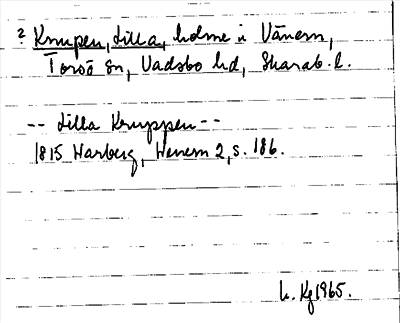 ? Knupen, Lilla, holme i Vänern,
Torsö sn, Vadsbo hd, Skarab. l.
-- Lilla Knuppen --
1815 Warberg, Wenern 2, s. 186.
L. Kg 1965.